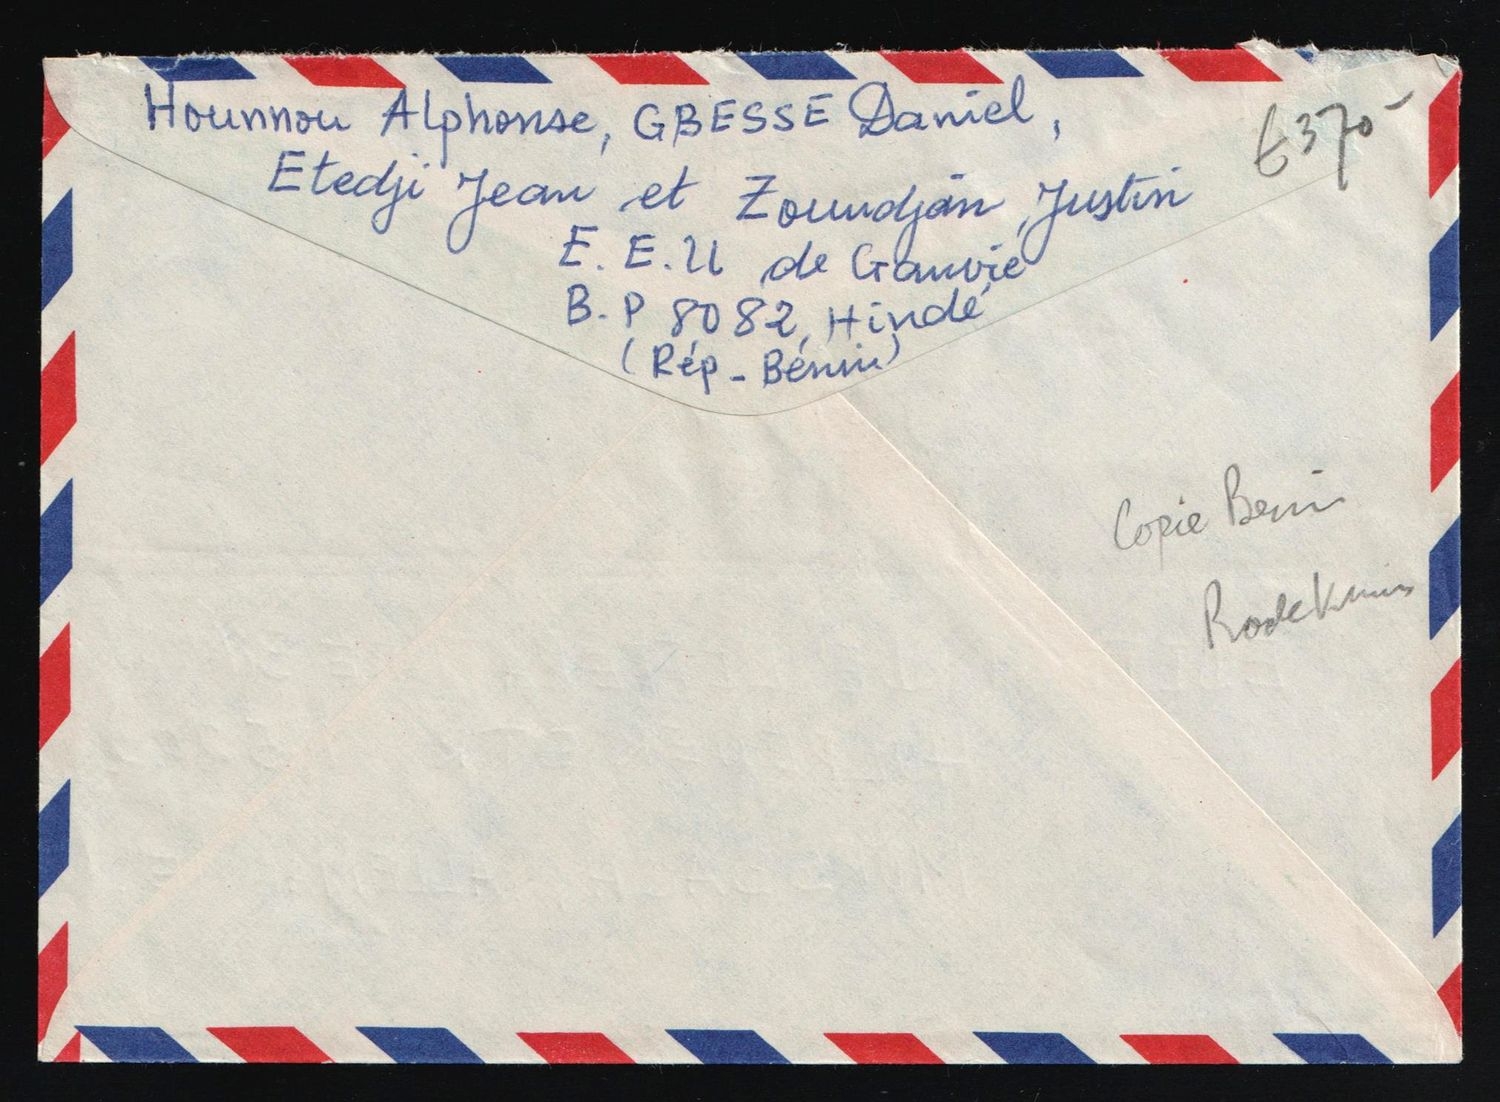 Hounnou Alphonse, GBESSE Daniel,
Etedji Jean et Zoundjan Justin
E.E.U de Ganvié
B.P 8082, Hindé
(Rép - Bénin)
€370-
Copie Benin